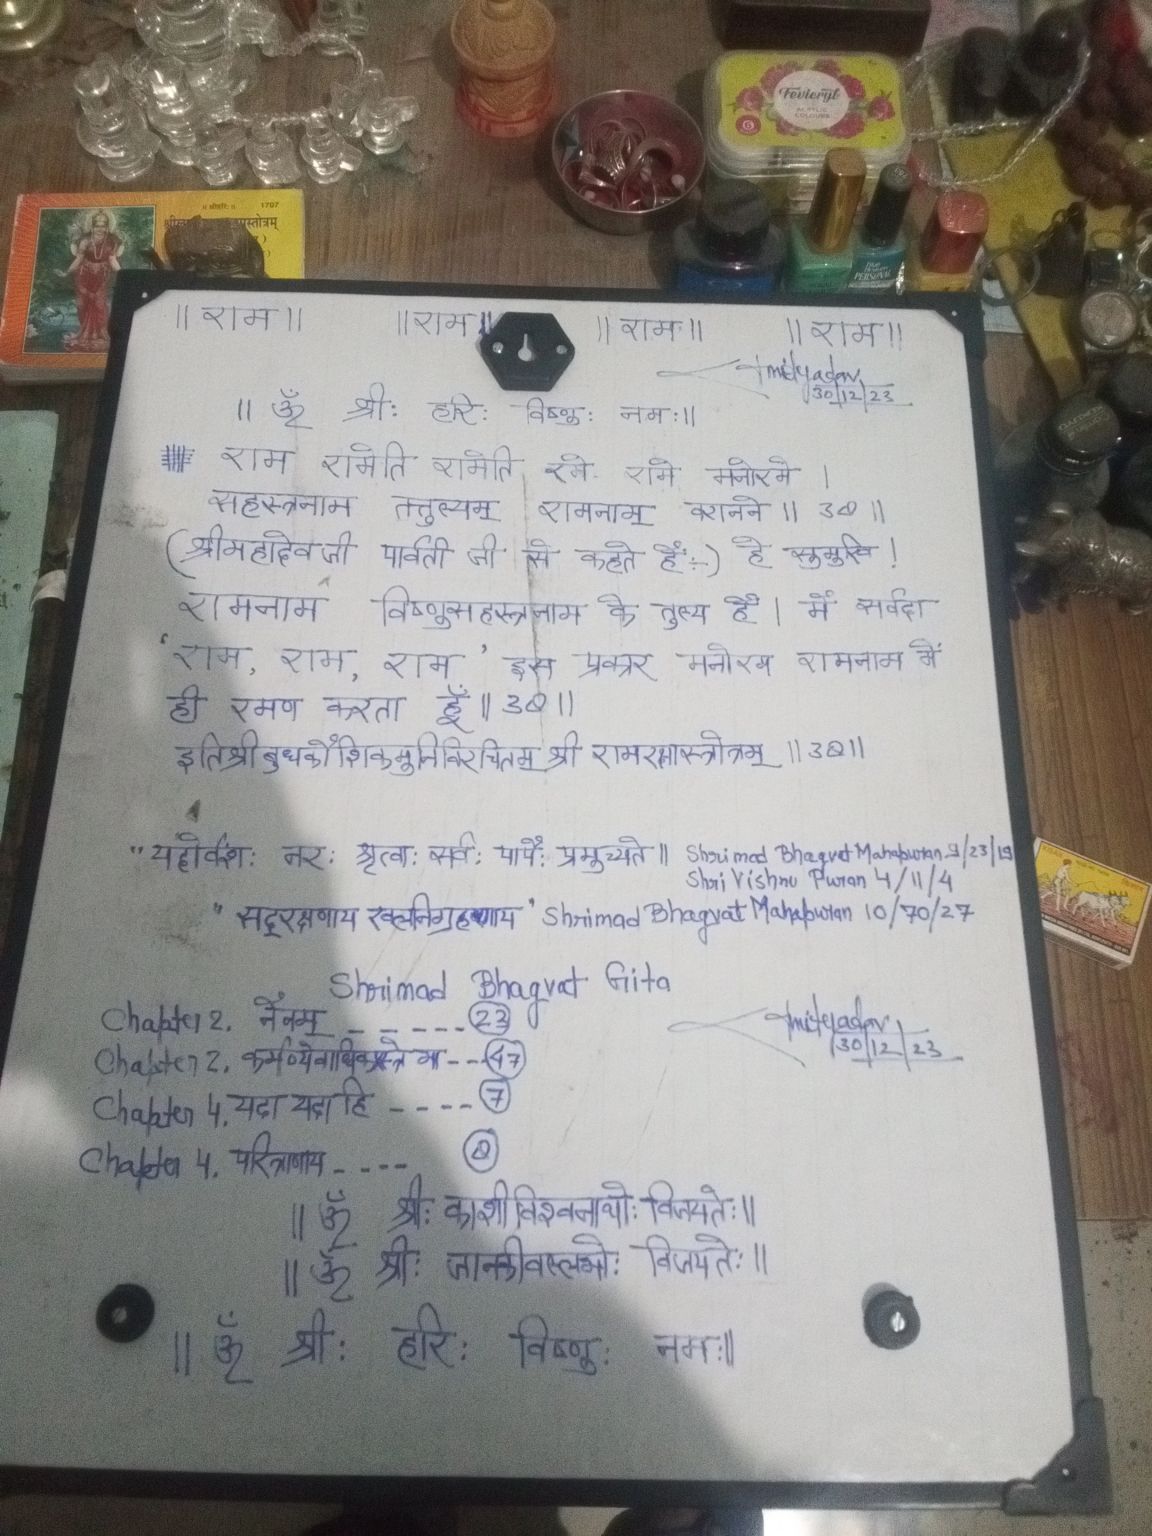 ॥ श्रीहरिः ॥ 1707
Fevicryl
ACRYLIC
COLOURS
PERSONAL
॥ राम ॥ ॥ राम ॥ ॥ रामः ॥ ॥ राम ॥
Amityadav
30/12/23
॥ ॐ श्रीः हरिः विष्णुः नमः ॥
राम रामेति रामेति रमे रामे मनोरमे ।
सहस्त्रनाम तत्तुल्यम् रामनाम् वरानने ॥ 38 ॥
(श्रीमहादेव जी पार्वती जी से कहते हैं:-) हे सुमुखि !
रामनाम विष्णुसहस्त्रनाम के तुल्य हैं । में सर्वदा
'राम, राम, राम' इस प्रकार मनोरम रामनाम में
ही रमण करता हूँ ॥ 38 ॥
इतिश्रीबुधकौशिकमुनिविरचितम् श्री रामरक्षास्त्रोत्रम् ॥ 38 ॥
"यदोर्वंशः नरः श्रृत्वाः सर्वः पापैः प्रमुच्यते ॥ Shrimad Bhagvat Mahapuran 9/23/19
Shri Vishnu Puran 4/11/4
" सद्रक्षणाय खलनिग्रहणाय " Shrimad Bhagvat Mahapuran 10/70/27
Shrimad Bhagvat Gita
Chapter 2. नैनम् ----- 23
Chapter 2. कर्मण्येवाधिकारस्ते मा --- 47
Chapter 4. यदा यदा हि ---- 7
Chapter 4. परित्राणाय ---- 8
Amityadav
30/12/23
॥ ॐ श्रीः काशीविश्वनाथोः विजयतेः ॥
॥ ॐ श्रीः जानकीवल्लभोः विजयतेः ॥
॥ ॐ श्रीः हरिः विष्णुः नमः ॥